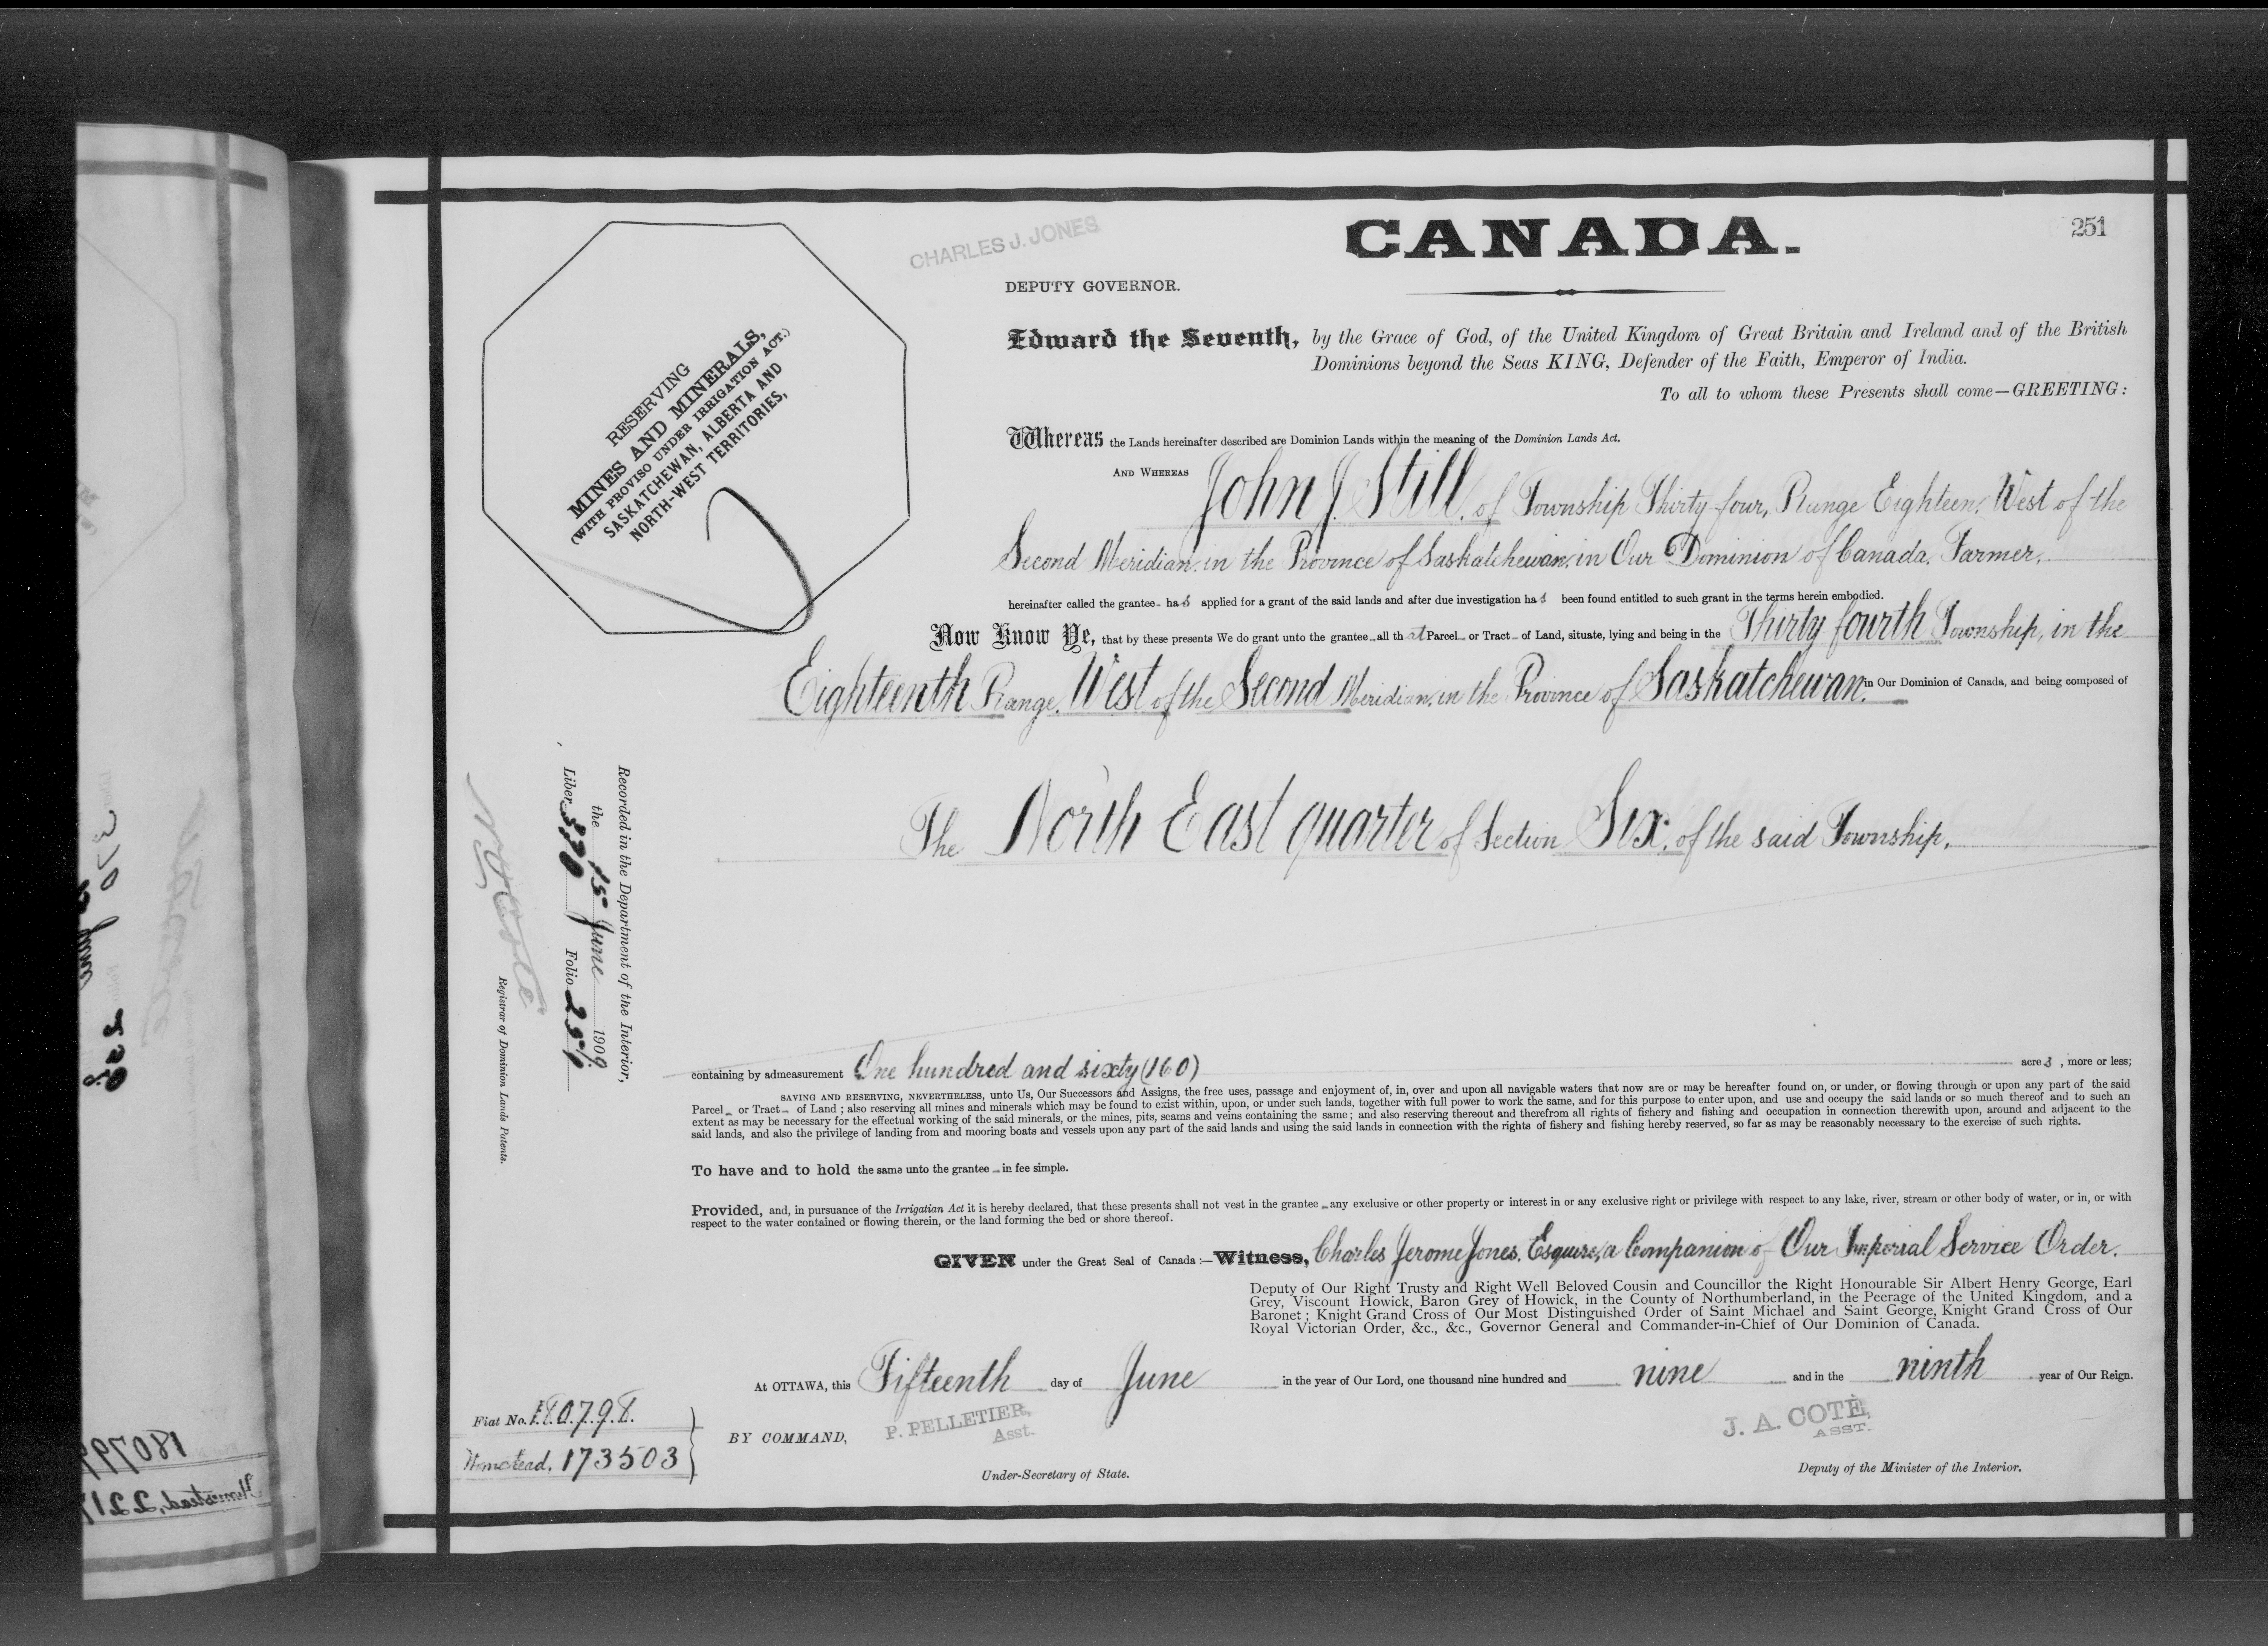 CHARLES J. JONES
CANADA.
251
DEPUTY GOVERNOR.
RESERVING
MINES AND MINERALS,
(WITH PROVISO UNDER IRRIGATION ACT.)
SASKATCHEWAN, ALBERTA AND
NORTH-WEST TERRITORIES,
Edward the Seventh, by the Grace of God, of the United Kingdom of Great Britain and Ireland and of the British
Dominions beyond the Seas KING, Defender of the Faith, Emperor of India.
To all to whom these Presents shall come—GREETING:
Whereas the Lands hereinafter described are Dominion Lands within the meaning of the Dominion Lands Act.
AND WHEREAS John J. Still, of Township Thirty-four, Range Eighteen, West of the
Second Meridian, in the Province of Saskatchewan, in Our Dominion of Canada, Farmer,
hereinafter called the grantee has applied for a grant of the said lands and after due investigation has been found entitled to such grant in the terms herein embodied.
Now Know Ye, that by these presents We do grant unto the grantee all that Parcel or Tract of Land, situate, lying and being in the Thirty fourth Township, in the
Eighteenth Range, West of the Second Meridian, in the Province of Saskatchewan, in Our Dominion of Canada, and being composed of
The North East quarter of Section Six, of the said Township,
Recorded in the Department of the Interior,
the 15 June 1909.
Liber 370 Folio 251
Registrar of Dominion Lands Patents.
containing by admeasurement One hundred and sixty (160) acres, more or less;
SAVING AND RESERVING, NEVERTHELESS, unto Us, Our Successors and Assigns, the free uses, passage and enjoyment of, in, over and upon all navigable waters that now are or may be hereafter found on, or under, or flowing through or upon any part of the said
Parcel or Tract of Land; also reserving all mines and minerals which may be found to exist within, upon, or under such lands, together with full power to work the same, and for this purpose to enter upon, and use and occupy the said lands or so much thereof and to such an
extent as may be necessary for the effectual working of the said minerals, or the mines, pits, seams and veins containing the same; and also reserving thereout and therefrom all rights of fishery and fishing and occupation in connection therewith upon, around and adjacent to the
said lands, and also the privilege of landing from and mooring boats and vessels upon any part of the said lands and using the said lands in connection with the rights of fishery and fishing hereby reserved, so far as may be reasonably necessary to the exercise of such rights.
To have and to hold the same unto the grantee in fee simple.
Provided, and, in pursuance of the Irrigatian Act it is hereby declared, that these presents shall not vest in the grantee any exclusive or other property or interest in or any exclusive right or privilege with respect to any lake, river, stream or other body of water, or in, or with
respect to the water contained or flowing therein, or the land forming the bed or shore thereof.
GIVEN under the Great Seal of Canada:—Witness, Charles Jerome Jones, Esquire, a Companion of Our Imperial Service Order.
Deputy of Our Right Trusty and Right Well Beloved Cousin and Councillor the Right Honourable Sir Albert Henry George, Earl
Grey, Viscount Howick, Baron Grey of Howick, in the County of Northumberland, in the Peerage of the United Kingdom, and a
Baronet; Knight Grand Cross of Our Most Distinguished Order of Saint Michael and Saint George, Knight Grand Cross of Our
Royal Victorian Order, &c., &c., Governor General and Commander-in-Chief of Our Dominion of Canada.
At OTTAWA, this Fifteenth day of June in the year of Our Lord, one thousand nine hundred and nine and in the ninth year of Our Reign.
Fiat No. 180798.
Homestead, 173503
BY COMMAND,
P. PELLETIER,
Asst.
Under-Secretary of State.
J. A. COTÉ,
ASST.
Deputy of the Minister of the Interior.